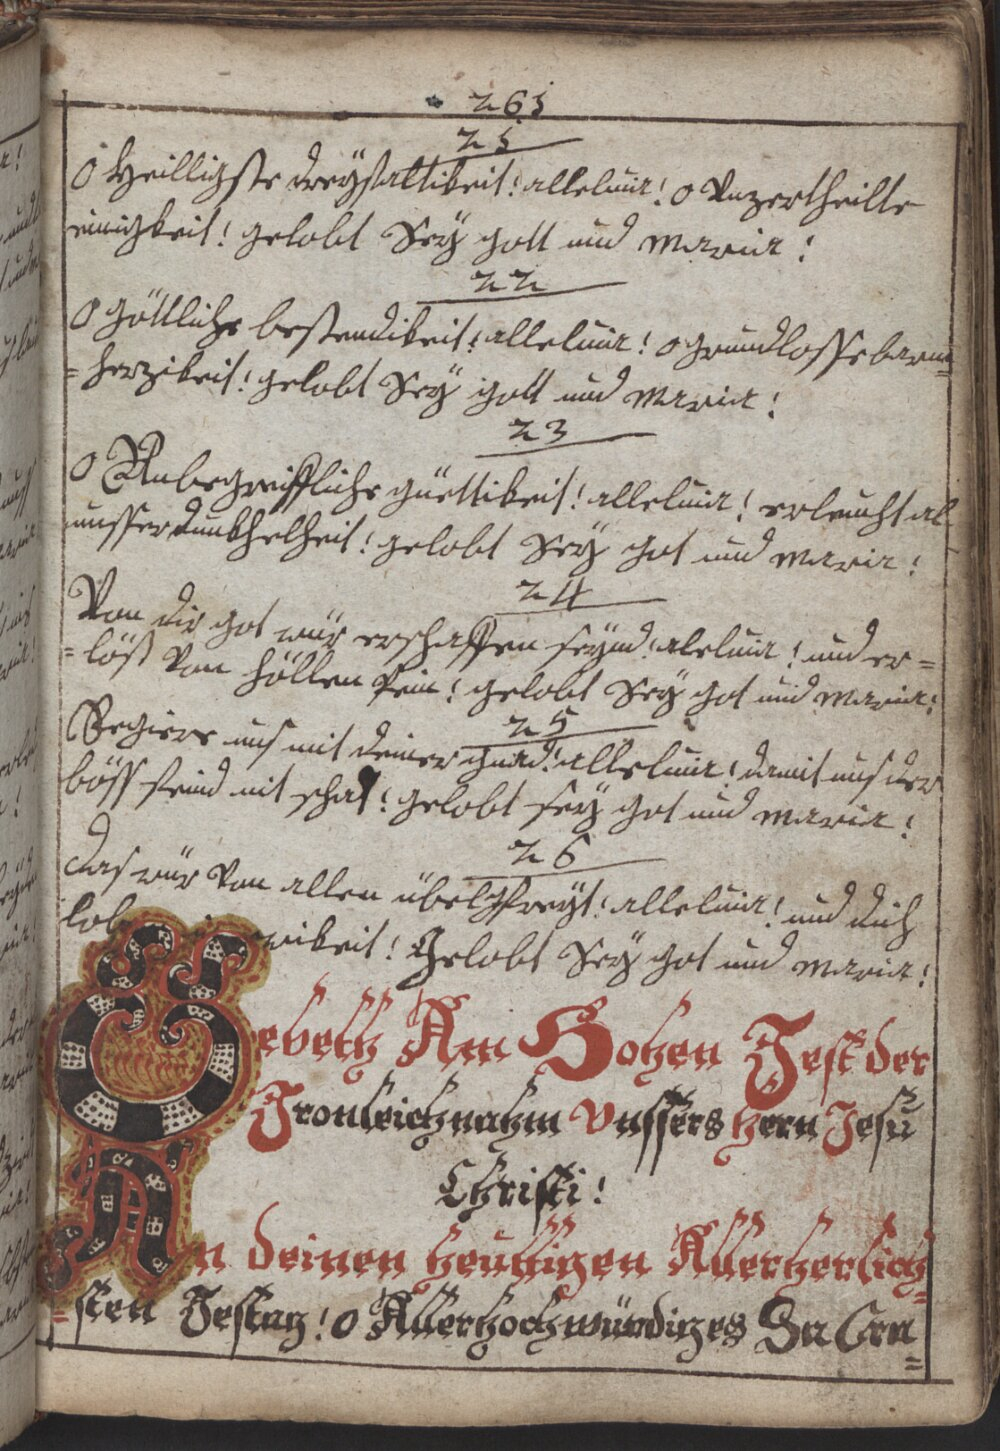 261
21
O Heilligste dreyfaltikeit! alleluia! o Unzertheilte
einigkeit! gelobt Sey gott und Maria!
22
O göttliche bestendikeit! alleluia! o grundlosse barm
=herzikeit! gelobt Sey gott und Maria!
23
O Unbegreiffliche güettikeit! alleluia! erleucht al
unsser dunkhelheit! gelobt Sey got und Maria!
24
Von dir got wür erschaffen seynd! aleluia! und er=
=löst von höllen Pein! gelobt Sey got und Maria!
25
Regiere uns mit deiner gnad! alleluia! damit uns der
böss feind nit schat! gelobt sey got und Maria!
26
Das wür von allen übel gfreyt! alleluia! und dich
lob wikeit! Gelobt Sey got und Maria!
Gebett Am Hohen Fest der
Fronleichnahm Unssers Hern Jesu
Christi!
An deinen heuttigen Allerherlich
=sten Festag! O Allerhochwürdiges Sa Cra
=